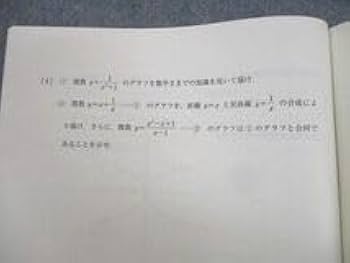 [4] (1) 関数 y=-1/(x²+1) のグラフを数学Ⅱまでの知識を用いて描け.
(2) 関数 y=x+1/x ——① のグラフを, 直線 y=x と双曲線 y=1/x の合成によ
り描け. さらに, 関数 y=(x²-x+1)/(x-1) ——② のグラフは①のグラフと合同で
あることを示せ.